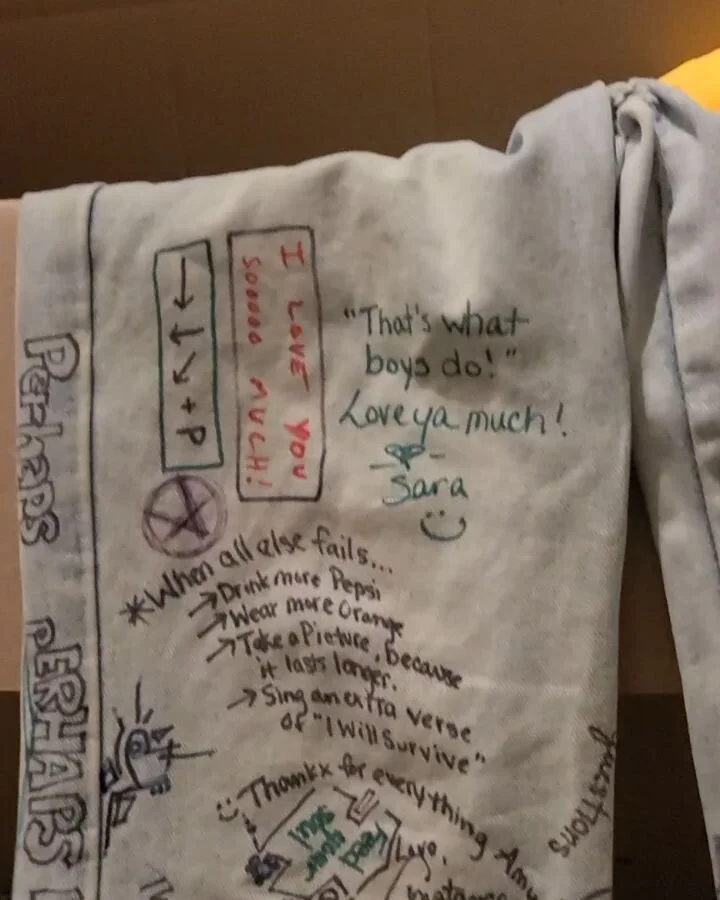 I LOVE YOU
SOOOOO MUCH!
→↓↘+P
"That's what
boys do!"
Love ya much!
Sara
Perhaps
PERHAPS
*When all else fails...
→Drink more Pepsi
→Wear more Orange
→Take a Picture, because
it lasts longer.
→Sing an extra verse
of "I Will Survive"
Thankx for everything Amy
Love,
questions